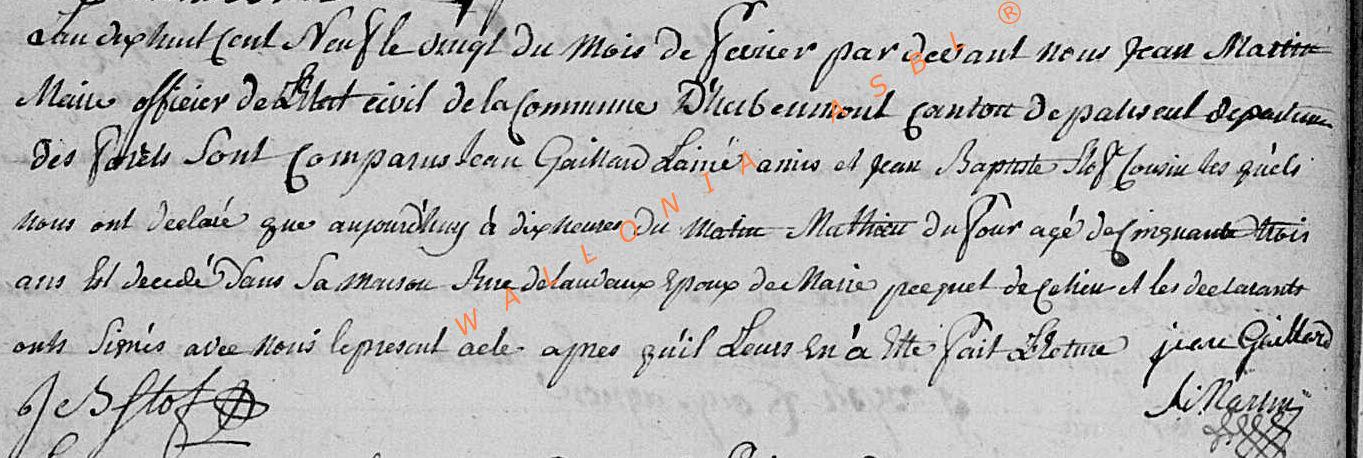 L'an dix huit cent Neuf le vingt du mois de fevrier par devant nous Jean Martin
Maire officier de L'Etat civil de la Commune D'hubermont canton de paliseul departem
des forêts Sont Comparus Jean Gaillard L'ainé amis et Jean Baptiste Slof Cousin les quels
nous ont declaré que aujourd'huy à dix heures du matin Mathieu du four agé de Cinquante trois
ans Est decedé Dans Sa maison Rue Epoux de Marie pecquet de Ce lieu et les declarants
onts Signés avec Nous le present acte apres qu'il Leurs En à Etté fait Lecture jean Gaillard
J B Slof J Martin
WALLONIA ASBL ®